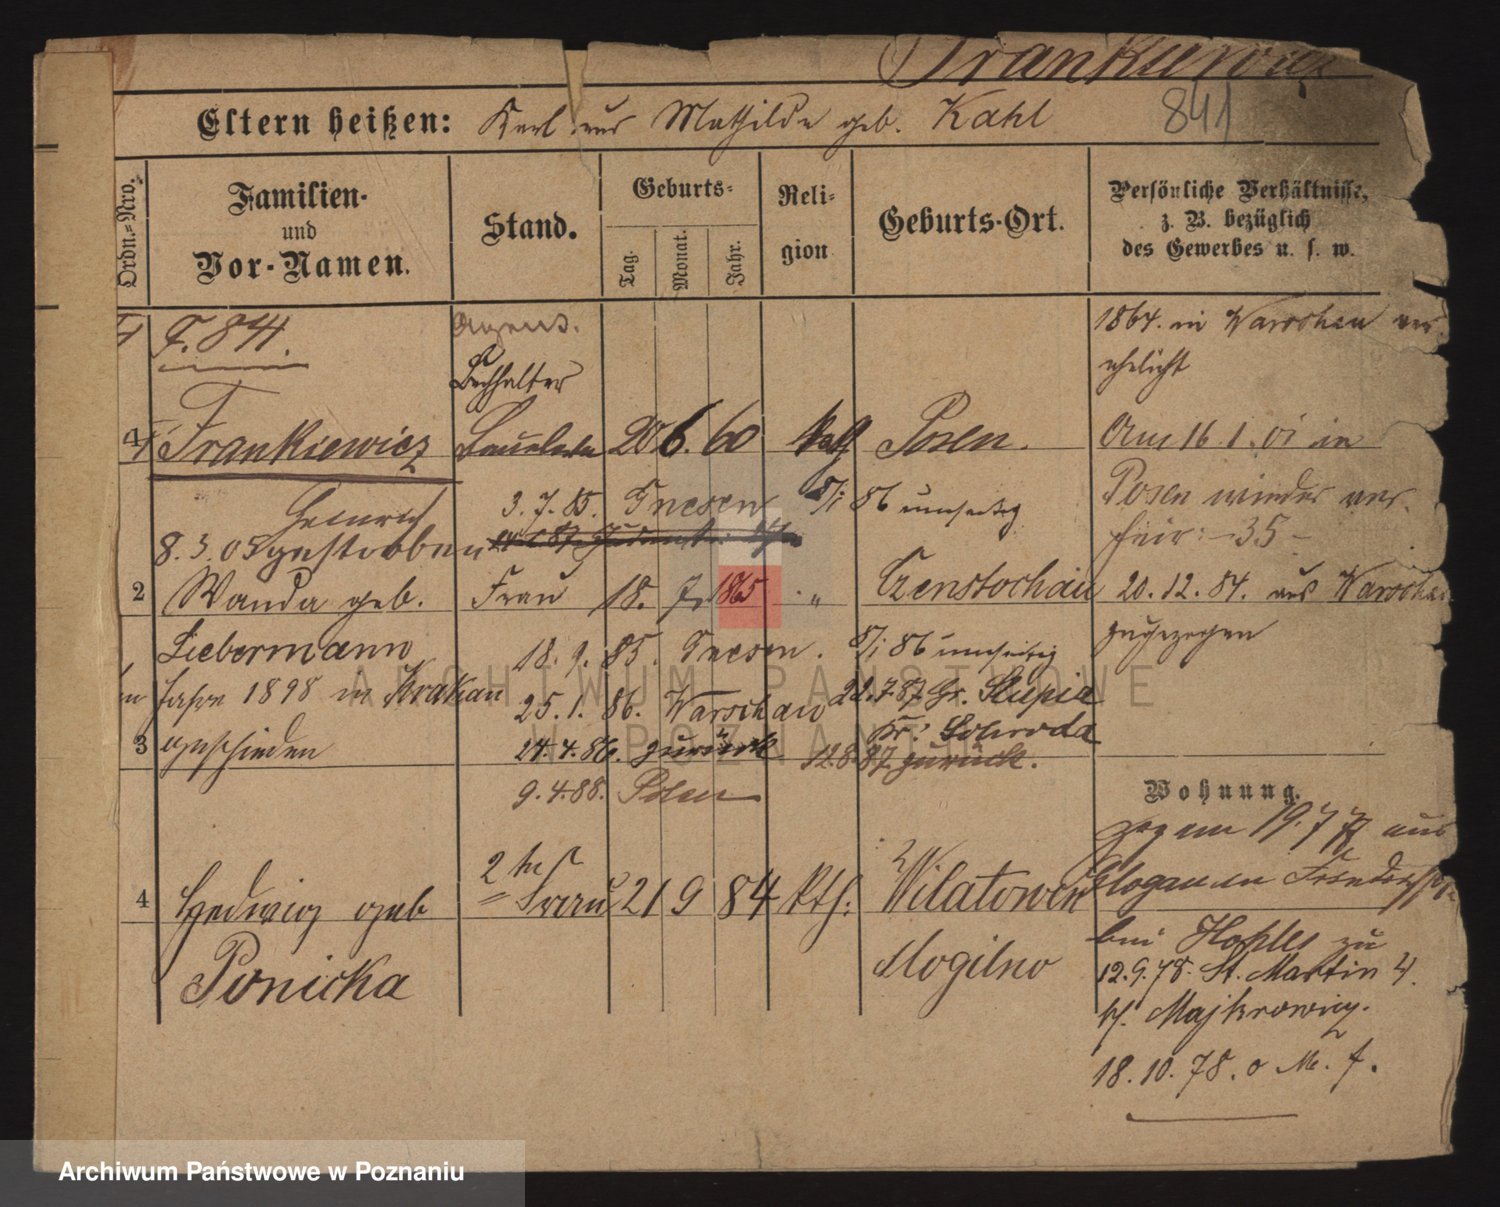 Frankiewicz
841
Eltern heißen: Karl und Mathilde geb. Kahl
Ordn.=Nro.
Familien- und Vor-Namen.
Stand.
Geburts=
Tag.
Monat.
Jahr.
Reli=gion
Geburts-Ort.
Persönliche Verhältnisse,
z. B. bezüglich
des Gewerbes u. s. w.
F. 841.
1864. in Warschau ver
ehelicht
Buchhalter
Frankiewicz
20 6. 60 Kath Posen.
Am 16. 1. 01 in
Posen wieder ver
heir: -35-
Heinrich
3. 7. 85. Gnesen
5/1 86 umseitig
8. 3. 05 gestorben
2 Wanda geb. Frau 18. 7. 1865 " Czenstochau
20. 12. 84. aus Warschau
zugezogen
Liebermann
18. 9. 85. Gnesen. 5/1 86 umseitig
Jahre 1898 in Krakau
25. 1. 86. Warschau 22.7 87 Gr. Slupia
Kr. Schroda
3 geschieden
24. 4. 86. zurück 12.8.87 zurück.
9. 4. 88. Posen
Wohnung.
zog am 19. 7 77 aus
Glogau
2te
4 Hedwig geb Frau 21 9 84 Kth: Wilatowen
Ponicka
Mogilno
bei zu
12. 9. 78. St. Martin 4.
b/. Majkrowicz.
18. 10. 78. o M. f.
ARCHIWUM PAŃSTWOWE
W POZNANIU
Archiwum Państwowe w Poznaniu